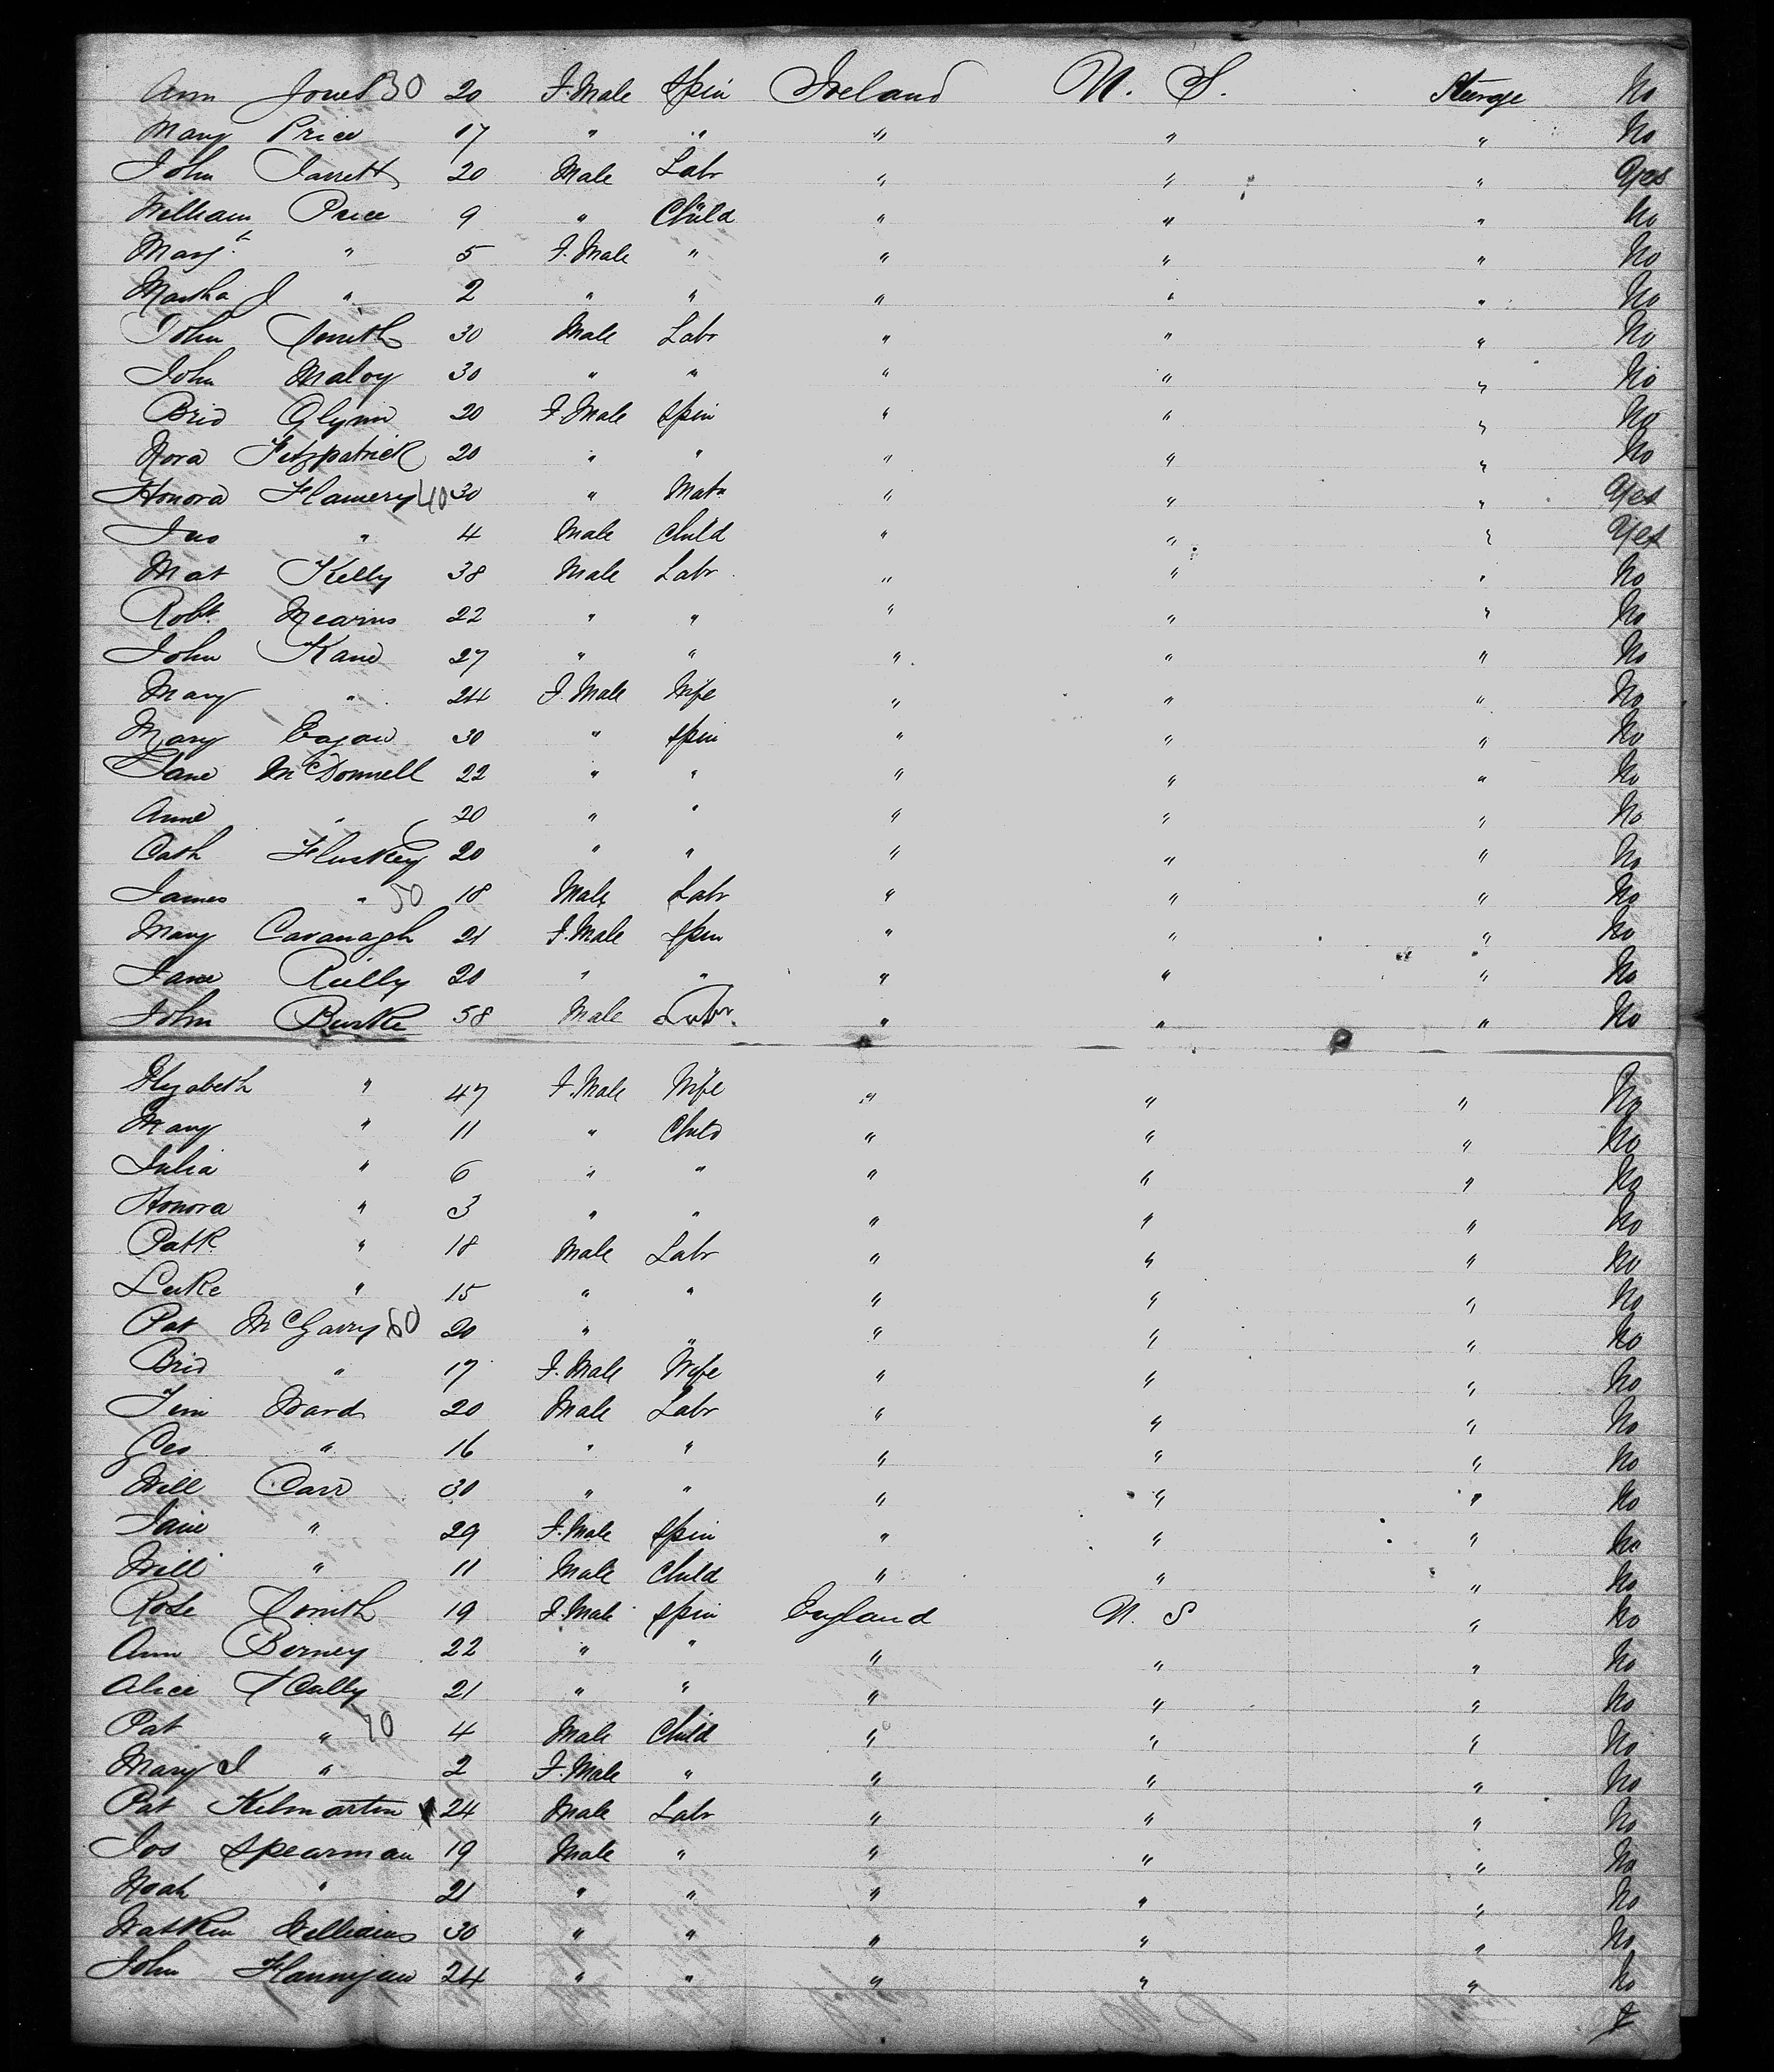 Ann Jones 30 20 F. Male Spin Ireland U. S. Steerage No
Mary Price 17 " " " " " No
John Jarrett 20 Male Labr " " " Yes
William Price 9 " Child " " " No
Margt " 5 F. Male " " " " No
Martha J " 2 " " " " " No
John Smith 30 Male Labr " " " No
John Maloy 30 " " " " " No
Brid Glynn 20 F. Male Spin " " " No
Nora Fitzpatrick 20 " " " " " No
Honora Flamery 40 30 " Matn " " " Yes
Jno " 4 Male Child " " " Yes
Mat Kelly 38 Male Labr " " " No
Robt. Mearns 22 " " " " " No
John Kane 27 " " " " " No
Mary " 24 F. Male Wife " " " No
Mary Eagan 30 " Spin " " " No
Jane McDonnell 22 " " " " " No
Anne " 20 " " " " " No
Cath Fluskey 20 " " " " " No
James " 50 18 Male Labr " " " No
Mary Cavanagh 21 F. Male Spin " " " No
Jane Reilly 20 " " " " " No
John Burke 58 Male Labr. " " " No
Elizabeth " 47 F. Male Wife " " " No
Mary " 11 " Child " " " No
Julia " 6 " " " " " No
Honora " 3 " " " " " No
Patk " 18 Male Labr " " " No
Luke " 15 " " " " " No
Pat McGarry 60 20 " " " " " No
Brid " 17 F. Male Wife " " " No
Jim Ward 20 Male Labr " " " No
Geo " 16 " " " " " No
Will Carr 30 " " " " " No
Jane " 29 F. Male Spin " " " No
Will " 11 Male Child " " " No
Rose Smith 19 F. Male Spin England U. S " No
Ann Birney 22 " " " " " No
Alice 21 " " " " " No
Pat " 70 4 Male Child " " " No
Mary J " 2 F. Male " " " " No
Pat Kilmartin 24 Male Labr " " " No
Jos Spearman 19 Male " " " " No
Noah " 21 " " " " " No
Watkin Williams 30 " " " " " No
John Flannigan 24 " " " " " No